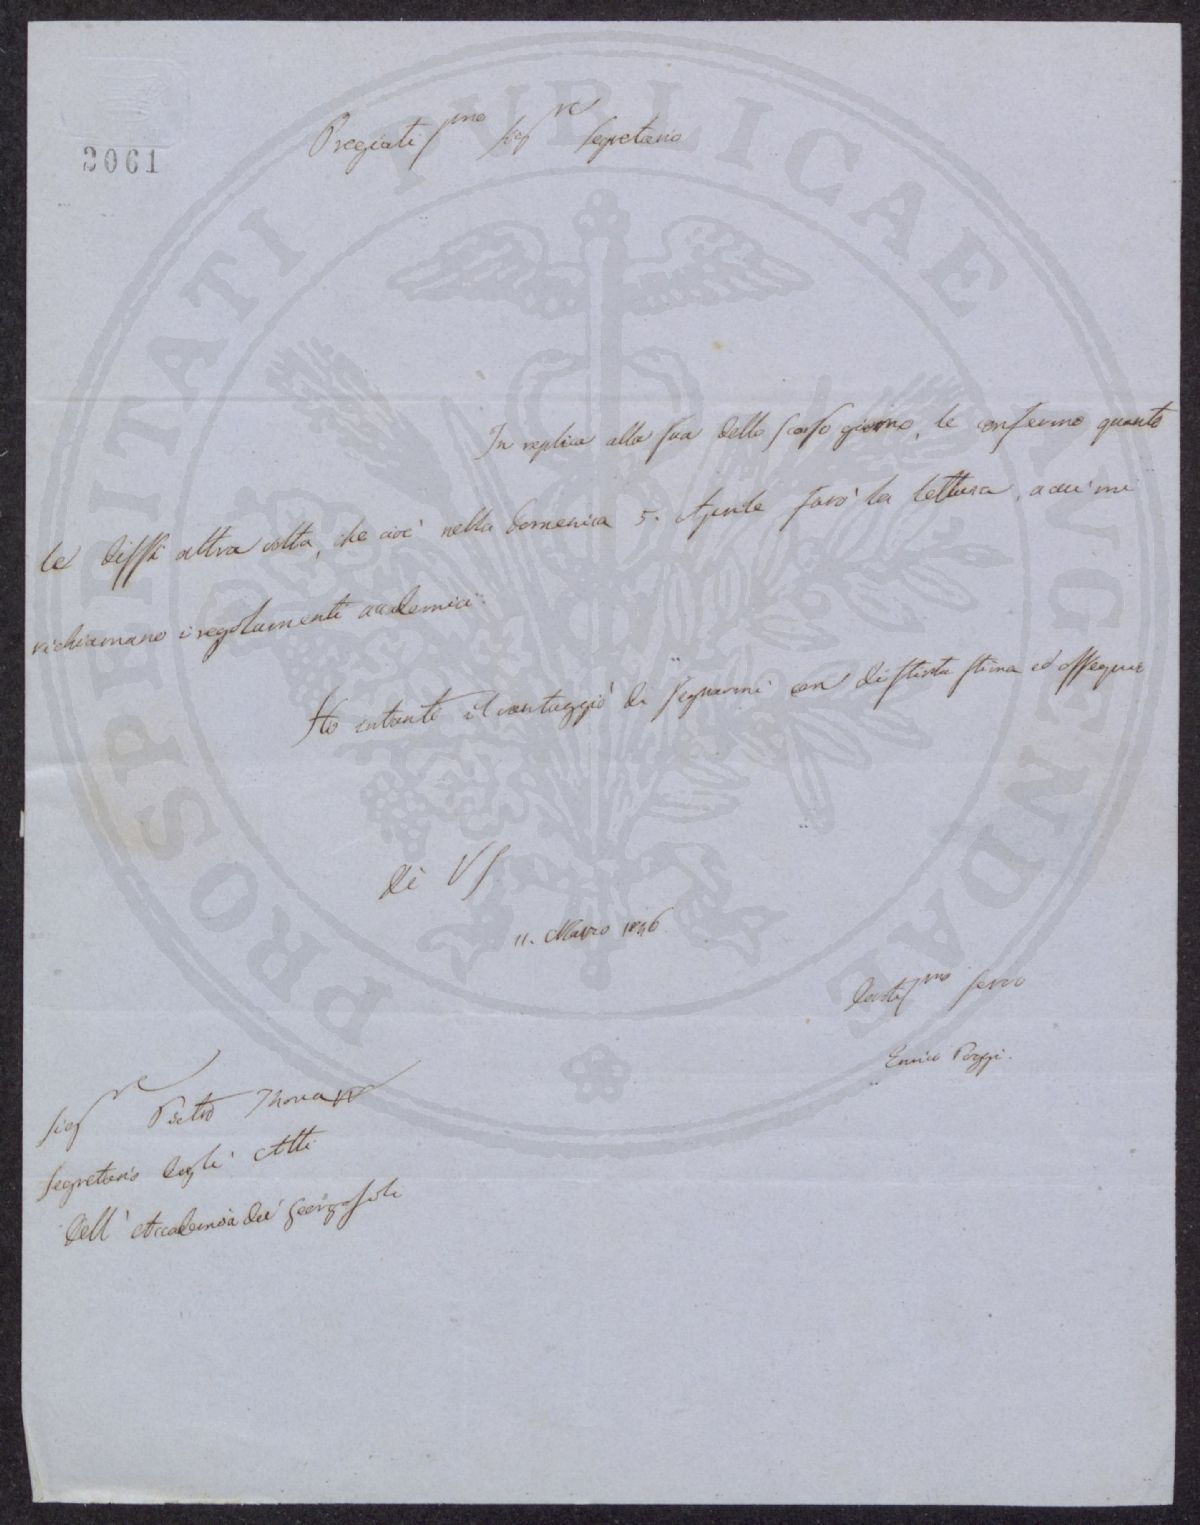 PROSPERITATI PUBLICAE AUGENDAE
2061
Pregiatissmo Sigre Segretario
In replica alla sua dello scorso giorno, le confermo quanto
le dissi altra volta, che cioè nella domenica 5. Aprile farò la lettura, a cui mi
richiamano i regolamenti accademici.
Ho intanto il vantaggio di segnarmi con distinta stima ed ossequio
di VS
11. Marzo 1846
Devotissmo servo
Enrico Poggi.
Sigre Pietro
Segretario degli Atti
dell'Accademia dei Georgofili